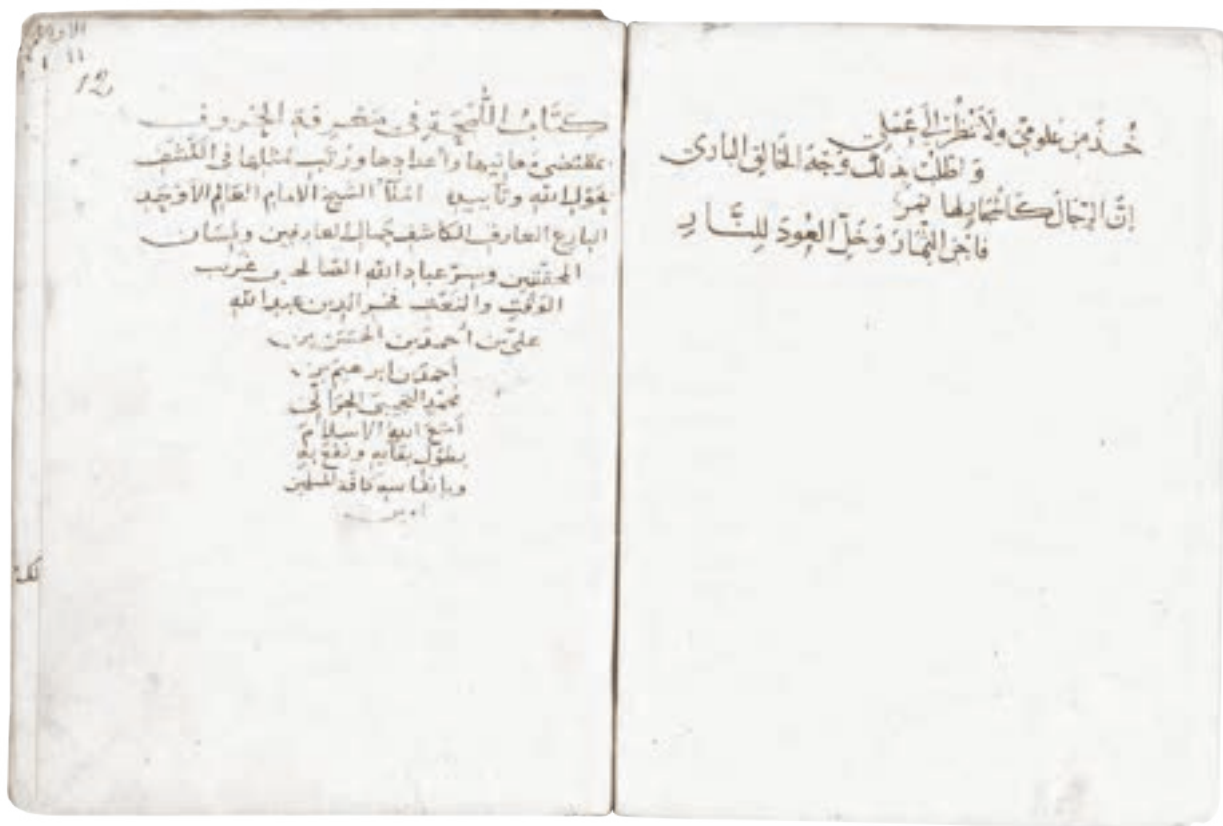 خُذْ مِن عُلومِي وَلَا تَنْظُرْ إلَى عَمَلِي
وَاطْلُبْ بِذَلِكَ وَجْهَ الخَالِقِ البَارِي
إنَّ الرِّجَالَ كَأَشْجَارٍ لَهَا ثَمَرٌ
فَاجْنِ الثِّمَارَ وَخَلِّ العُودَ لِلنَّارِ
11
12
كتاب اللمحة في معرفة الحروف
بمقتضى معانيها وأعدادها ورتب مثلها في الكشف
بحول الله وتأييده املأ الشيخ الامام العالم الاوحد
البارع العارف الكاشف جمال العارفين ولسان
المحققين وسر عباد الله الصالحين غريب
الوقت والنعت فخر الدين عبد الله
علي بن أحمد بن الحسن بن
أحمد بن ابرهيم بن
محمد التجيبي الحرالي
أمتع الله الاسلام
بطول بقايه ونفع به
وبانفاسه كافة المسلمين
امين